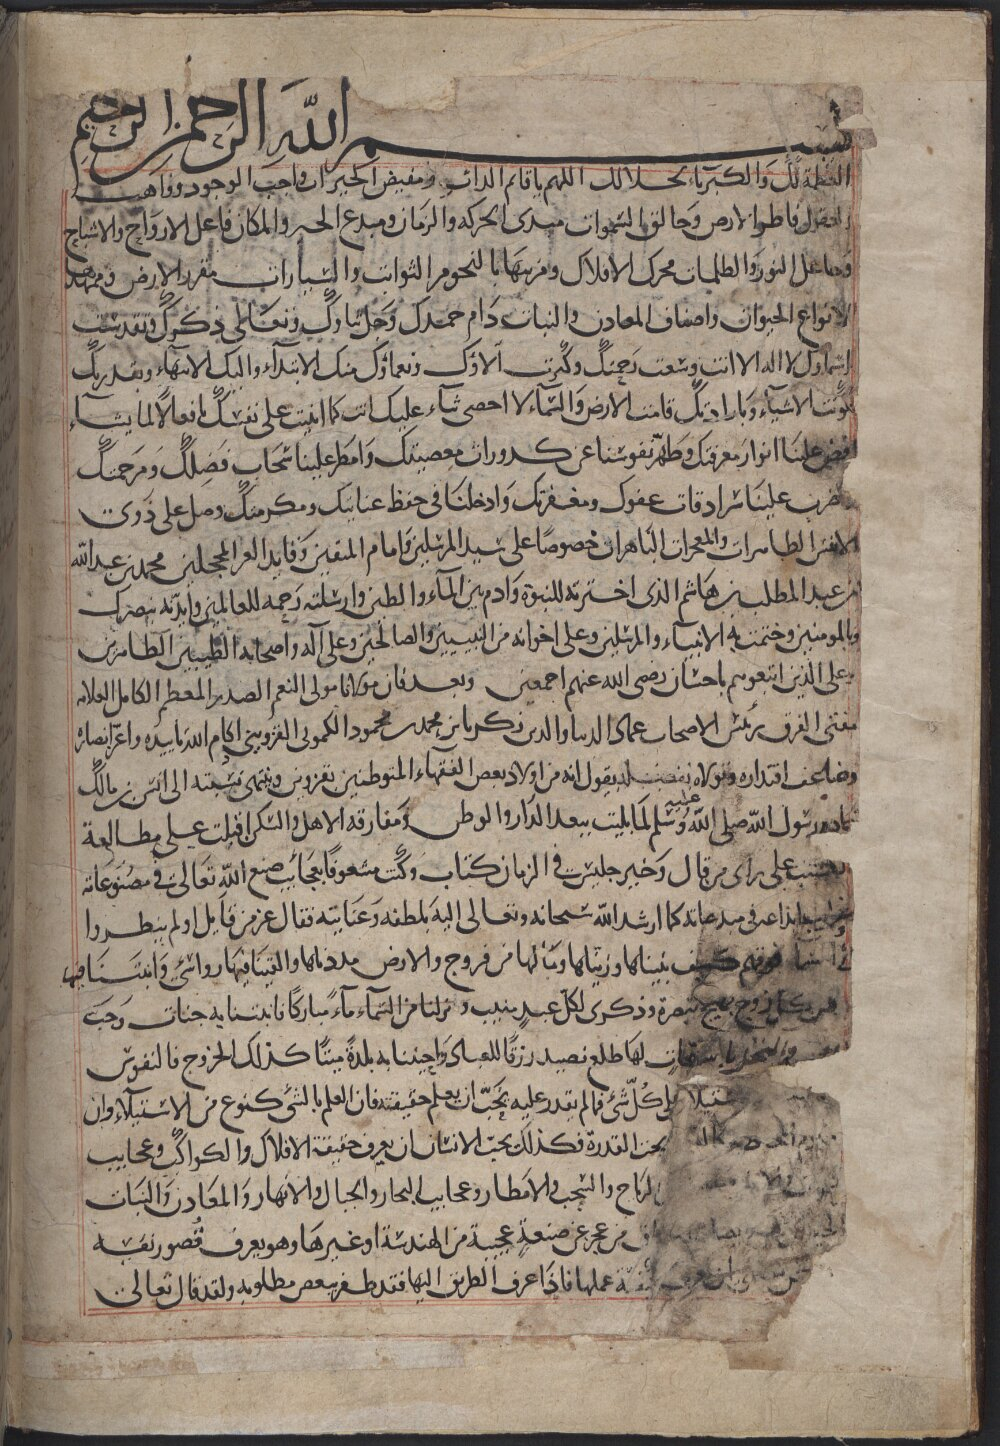 بسم الله الرحمن الرحيم
العظمة لك والكبرياء لجلالك اللهم يا قائم الذات ومفيض الخيرات واجب الوجود وواهب
العقول فاطر الارض وخالق السموات مبدئ الحركة والزمان ومبدع الحيز والمكان فاعل الارواح والاشباح
وجاعل النور والظلمات محرك الافلاك ومزينها بالنجوم الثوابت والسيارات مقرر الارض وممهدها
لانواع الحيوان واصناف المعادن والنبات دام حمدك وجل ثناؤك وتعالى ذكرك وتقدست
اسماؤك لا اله الا انت وسعت رحمتك وكثرت آلاؤك ونعماؤك منك الابتداء واليك الانتهاء وبقدرتك
تكونت الاشياء وبارادتك قامت الارض والسماء لا احصى ثناء عليك انت كما اثنيت على نفسك يا فعالا لما يشاء
افض علينا انوار معرفتك وطهر نفوسنا عن كدورات معصيتك وامطر علينا سحاب فضلك ومرحمتك
واضرب علينا سرادقات عفوك ومغفرتك وادخلنا فى حفظ عنايتك ومكرمتك وصل على ذوى
الانفس الطاهرات والمعجزات الباهرات خصوصا على سيد المرسلين وامام المتقين وقايد الغر المحجلين محمد بن عبد الله
بن عبد المطلب بن هاشم الذى اخترته للنبوة وادم بين الماء والطين وارسلته رحمة للعالمين وايدته بنصرك
وبالمومنين وختمت به الانبياء والمرسلين وعلى اخوانه من النبيين والصالحين وعلى آله واصحابه الطيبين الطاهرين
وعلى الذين اتبعوهم باحسان رضى الله عنهم اجمعين وبعد فان مولانا مولى النعم الصدر المعظم الكامل العلامة
مفتى الفرق رئيس الاصحاب عماد الدنيا والدين زكريا بن محمد بن محمود الكمونى القزوينى ادام الله تاييده واعز انصاره
وضاعف اقتداره وتولاه بفضله يقول انه من اولاد بعض الفقهاء المتوطنين بقزوين وينتهى نسبته الى انس بن مالك
خادم رسول الله صلى الله عليه وسلم لما بليت ببعد الدار والوطن ومفارقة الاهل والسكن اقبلت على مطالعة
الكتب على راى من قال وخير جليس فى الزمان كتاب وكنت مشعوفا بعجايب صنع الله تعالى فى مصنوعاته
وغرايب ابداعه فى مبدعاته كما ارشد الله سبحانه وتعالى اليه بلطفه وعنايته فقال عز من قايل اولم ينظروا
الى السماء فوقهم كيف بنيناها وزيناها وما لها من فروج والارض مددناها والقينا فيها رواسى وانبتنا فيها
من كل زوج بهيج تبصرة وذكرى لكل عبد منيب ونزلنا من السماء ماء مباركا فانبتنا به جنات وحب
والنخل باسقات لها طلع نضيد رزقا للعباد واحيينا به بلدة ميتا كذلك الخروج فالنفوس
على كل شئ فما لم يقدر عليه يحب ان يعلم حقيقته فان العلم بالشئ كنوع من الاستيلاء وان
تحت القدرة فكذلك يحب الانسان ان يعرف حقيقة الافلاك والكواكب وعجايب
الرياح والسحب والامطار وعجايب البحار والجبال والانهار والمعادن والنبات
من عجز عن صنعة عجيبة من الهندسة او غيرها وهو يعرف قصور نفسه
كيفية عملها فاذا عرف الطريق اليها فقد ظفر ببعض مطلوبه ولقد قال تعالى